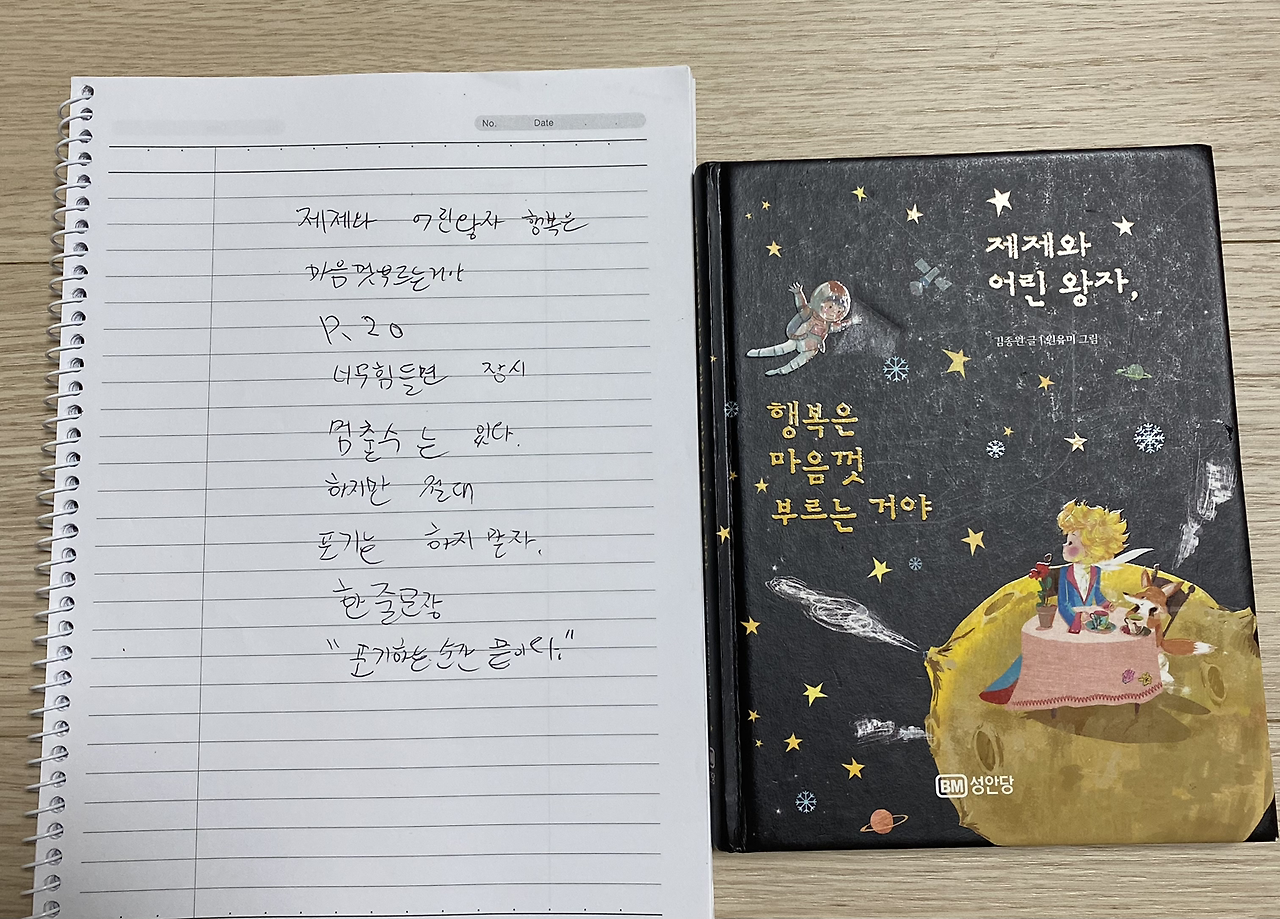 No. Date
제제와 어린왕자 행복은
마음껏부르는거야
P. 20
너무힘들면 잠시
멈출수는 있다.
하지만 절대
포기는 하지 말자.
한 줄문장
"포기하는 순간 끝이다."
제제와
어린 왕자,
김종완 글 | 원유미 그림
행복은
마음껏
부르는 거야
BM 성안당